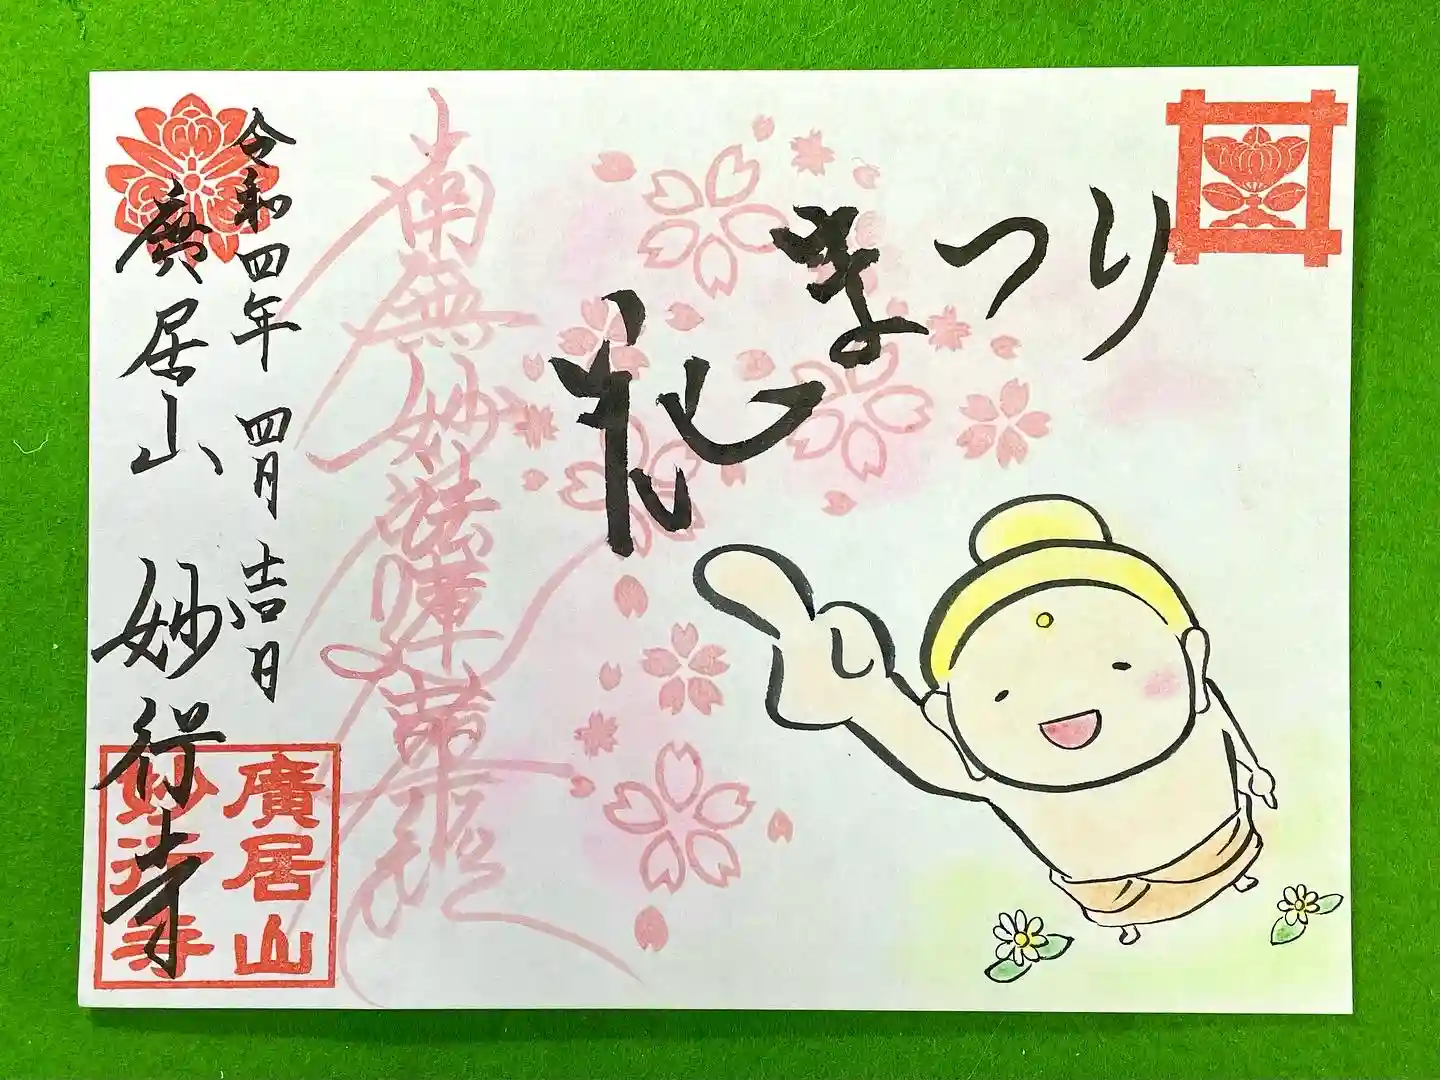 花まつり
南無妙法蓮華経
令和四年 四月 吉日
廣居山 妙行寺
廣居山
妙行寺